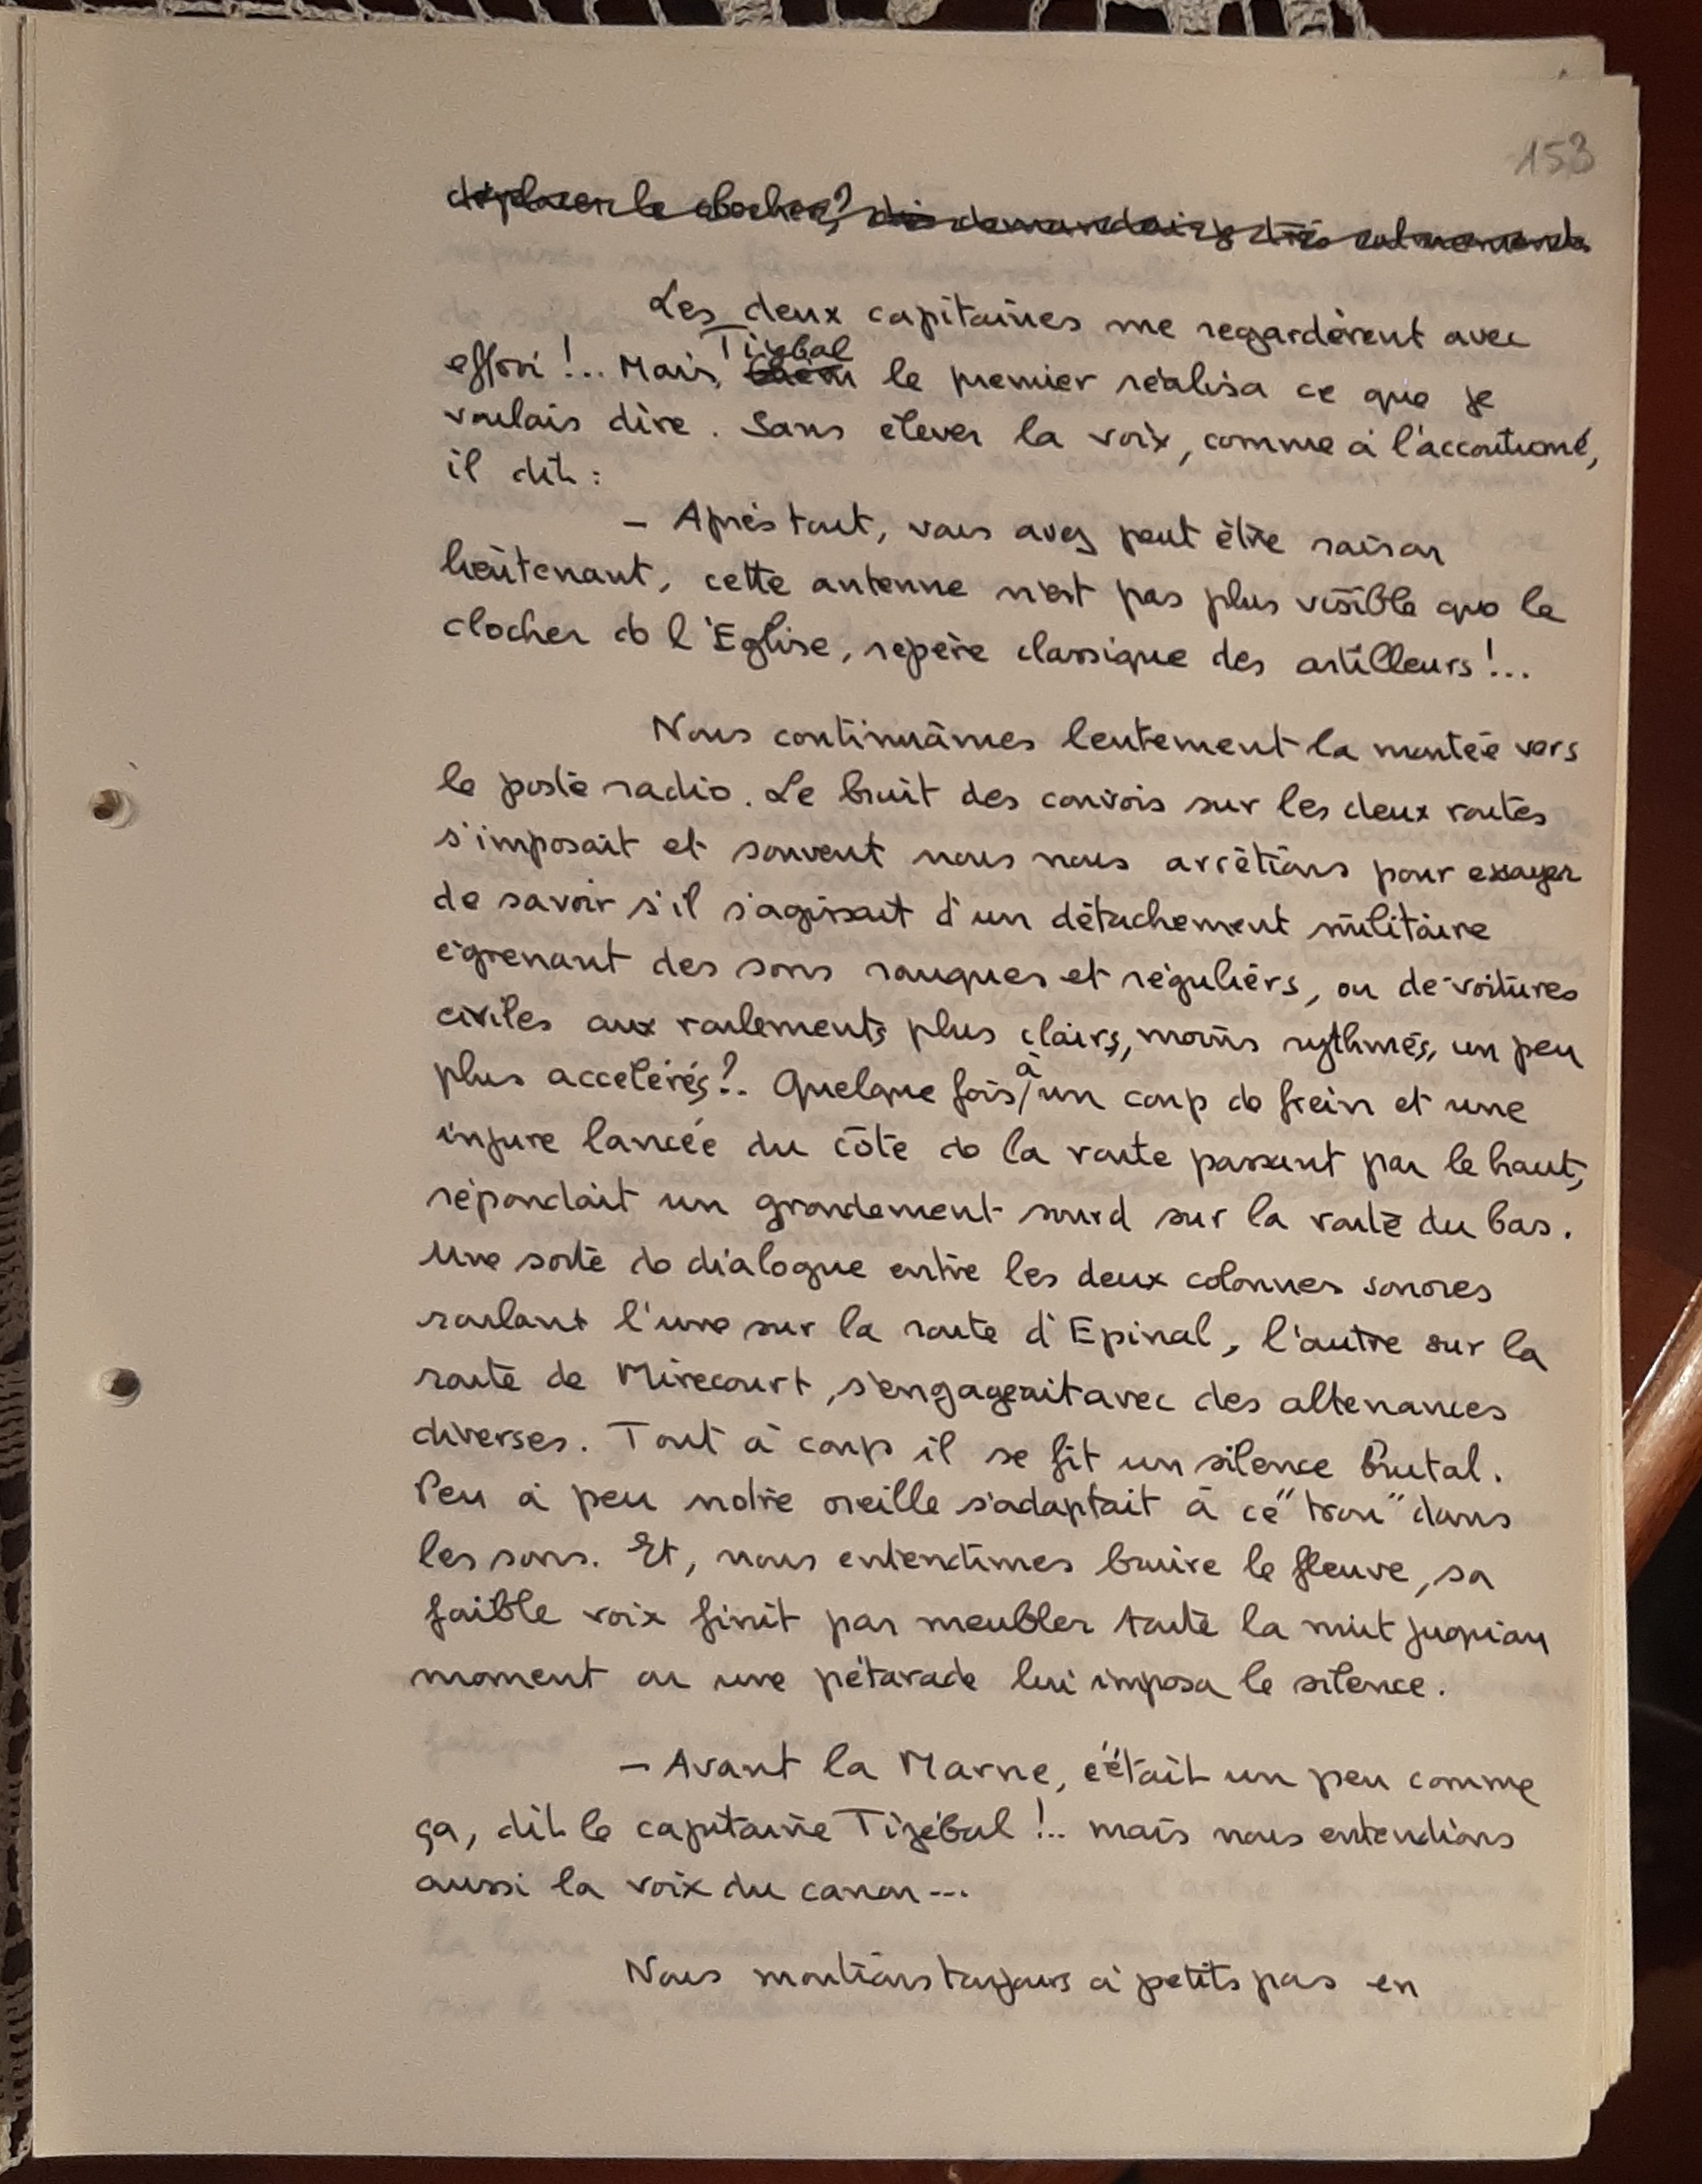 153
déplacer le clocher? demandais je très calmement
Les deux capitaines me regardèrent avec
effroi!.. Mais, Tizébal le premier réalisa ce que je
voulais dire. Sans élever la voix, comme à l'accoutumé,
il dit:
— Après tout, vous avez peut être raison
lieutenant, cette antenne n'est pas plus visible que le
clocher de l'Eglise, repère classique des artilleurs!...
Nous continuâmes lentement la montée vers
le poste radio. Le bruit des convois sur les deux routes
s'imposait et souvent nous nous arrêtions pour essayer
de savoir s'il s'agissait d'un détachement militaire
égrenant des sons rauques et réguliers, ou de voitures
civiles aux roulements plus clairs, moins rythmés, un peu
plus accélérés?. Quelque fois, à un coup de frein et une
injure lancée du côté de la route passant par le haut,
répondait un grondement sourd sur la route du bas.
Une sorte de dialogue entre les deux colonnes sonores
roulant l'une sur la route d'Epinal, l'autre sur la
route de Mirecourt, s'engageait avec des altenances
diverses. Tout à coup il se fit un silence brutal.
Peu à peu notre oreille s'adaptait à ce "trou" dans
les sons. Et, nous entendîmes bruire le fleuve, sa
faible voix finit par meubler toute la nuit jusqu'au
moment ou une pétarade lui imposa le silence.
— Avant la Marne, c'était un peu comme
ça, dit le capitaine Tizébal!.. mais nous entendions
aussi la voix du canon...
Nous montions toujours à petits pas en